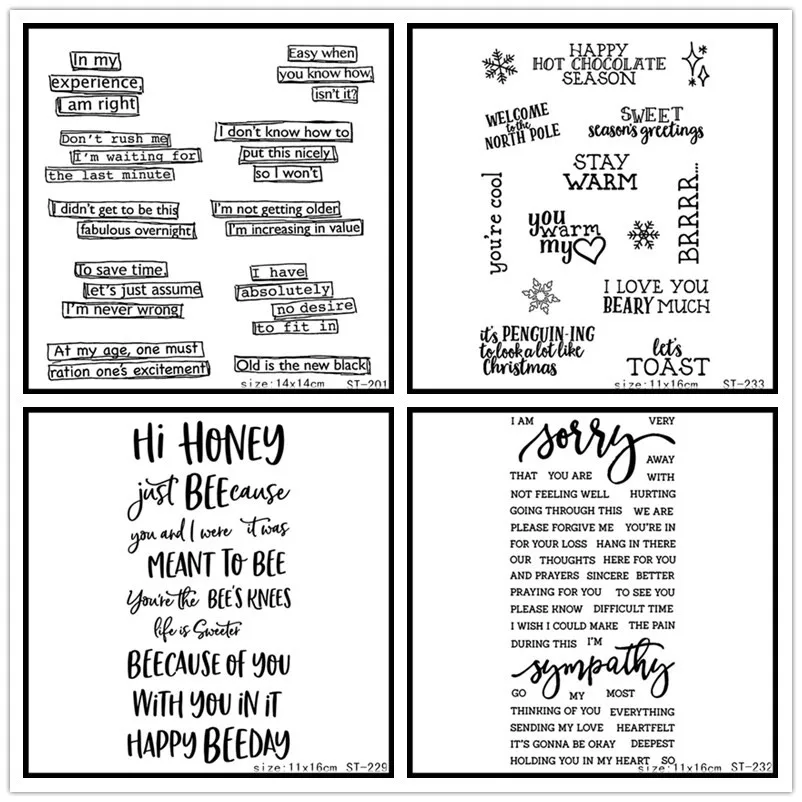 In my
experience,
I am right
Easy when
you know how,
isn't it?
Don't rush me
I'm waiting for
the last minute
I don't know how to
put this nicely
so I won't
I didn't get to be this
fabulous overnight
I'm not getting older
I'm increasing in value
To save time,
let's just assume
I'm never wrong
I have
absolutely
no desire
to fit in
At my age, one must
ration one's excitement
Old is the new black
size:14x14cm ST-201
HAPPY
HOT CHOCOLATE
SEASON
WELCOME
to the
NORTH POLE
SWEET
season's greetings
STAY
WARM
you're cool
you
warm
my
BRRRR...
I LOVE YOU
BEARY MUCH
it's PENGUIN-ING
to look a lot like
Christmas
let's
TOAST
size:11x16cm ST-233
Hi HONEY
just BEEcause
you and I were it was
MEANT TO BEE
You're the BEE'S KNEES
life is Sweeter
BEECAUSE OF YOU
WITH YOU IN IT
HAPPY BEEDAY
size:11x16cm ST-229
I AM VERY
sorry
AWAY
THAT YOU ARE WITH
NOT FEELING WELL HURTING
GOING THROUGH THIS WE ARE
PLEASE FORGIVE ME YOU'RE IN
FOR YOUR LOSS HANG IN THERE
OUR THOUGHTS HERE FOR YOU
AND PRAYERS SINCERE BETTER
PRAYING FOR YOU TO SEE YOU
PLEASE KNOW DIFFICULT TIME
I WISH I COULD MAKE THE PAIN
DURING THIS I'M
sympathy
GO MY MOST
THINKING OF YOU EVERYTHING
SENDING MY LOVE HEARTFELT
IT'S GONNA BE OKAY DEEPEST
HOLDING YOU IN MY HEART SO
size:11x16cm ST-232